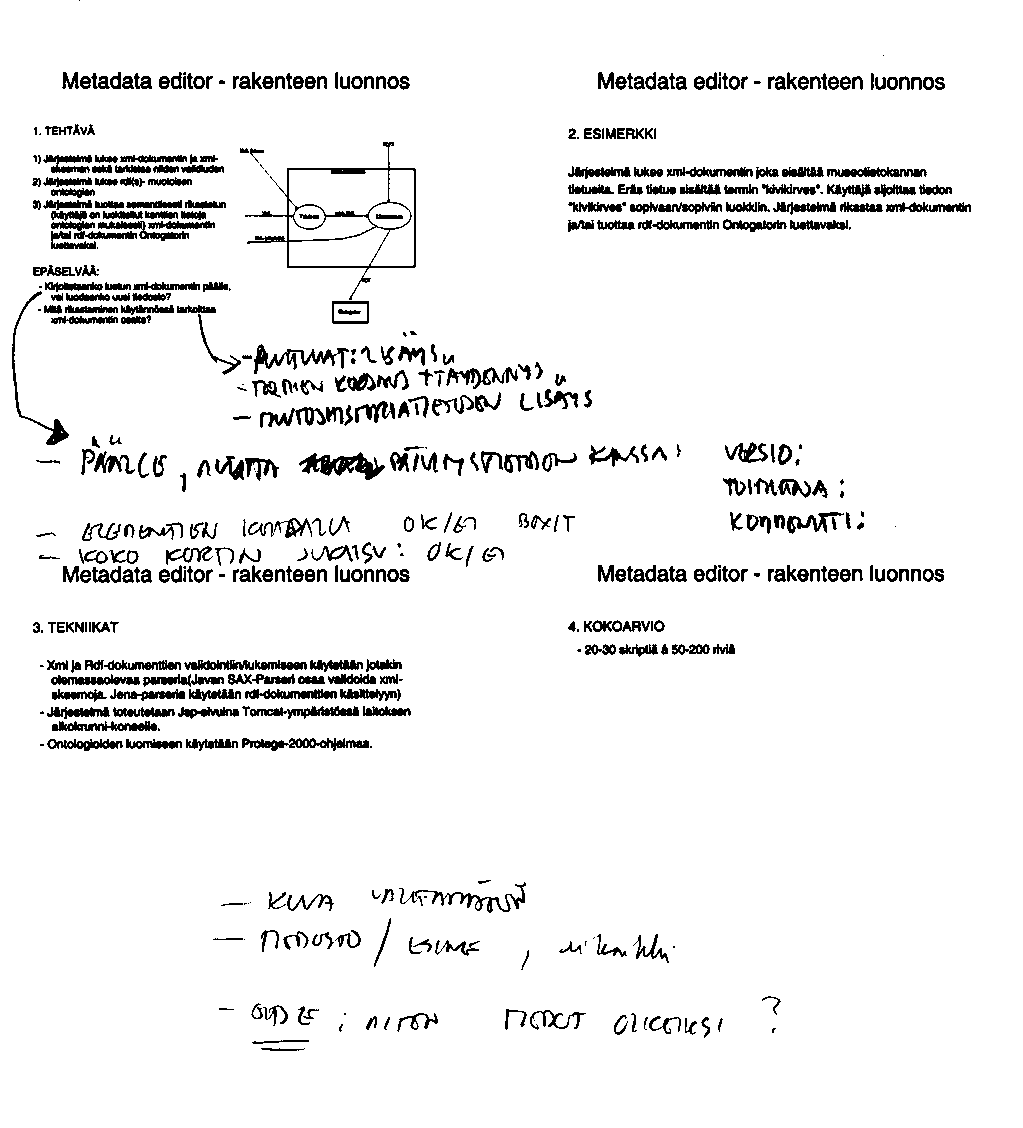 Metadata editor - rakenteen luonnos
1. TEHTÄVÄ
1) Järjestelmä lukee xml-dokumentin ja xml-
skeeman sekä tarkistaa niiden validiuden
2) Järjestelmä lukee rdf(s)- muotoisen
ontologian
3) Järjestelmä tuottaa semanttisesti rikastetun
(käyttäjä on luokitellut kenttien tietoja
ontologian mukaisesti) xml-dokumentin
ja/tai rdf-dokumentin Ontogatorin
luettavaksi.
EPÄSELVÄÄ:
- Kirjoitetaanko luetun xml-dokumentin päälle,
vai luodaanko uusi tiedosto?
- Mitä rikastaminen käytännössä tarkoittaa
xml-dokumentin osalta?
LISÄYS
- TERMIEN KORJAUS + TÄYDENNYS
- MUUTOSHISTORIATIETOJEN LISÄYS
- PÄÄLLE, MUTTA PÄIVITYSTIEDON KANSSA: VERSIO:
TOIMIJA:
KOMMENTTI:
- ELEMENTTIEN KOHDALLA OK/EI BOXIT
- KOKO KORTIN JULKAISU: OK/EI
Metadata editor - rakenteen luonnos
2. ESIMERKKI
Järjestelmä lukee xml-dokumentin joka sisältää museotietokannan
tietueita. Eräs tietue sisältää termin "kivikirves". Käyttäjä sijoittaa tiedon
"kivikirves" sopivaan/sopiviin luokkiin. Järjestelmä rikastaa xml-dokumentin
ja/tai tuottaa rdf-dokumentin Ontogatorin luettavaksi.
Metadata editor - rakenteen luonnos
3. TEKNIIKAT
- Xml ja Rdf-dokumenttien validointiin/lukemiseen käytetään jotakin
olemassaolevaa parseria(Javan SAX-Parseri osaa validoida xml-
skeemoja. Jena-parseria käytetään rdf-dokumenttien käsittelyyn)
- Järjestelmä toteutetaan Jsp-sivuina Tomcat-ympäristössä laitoksen
alkokrunni-koneelle.
- Ontologioiden luomiseen käytetään Protege-2000-ohjelmaa.
Metadata editor - rakenteen luonnos
4. KOKOARVIO
- 20-30 skriptiä á 50-200 riviä
- KUVA
- TIEDOSTO / ESINE,
- MITEN TIEDOT OIKEIKSI ?